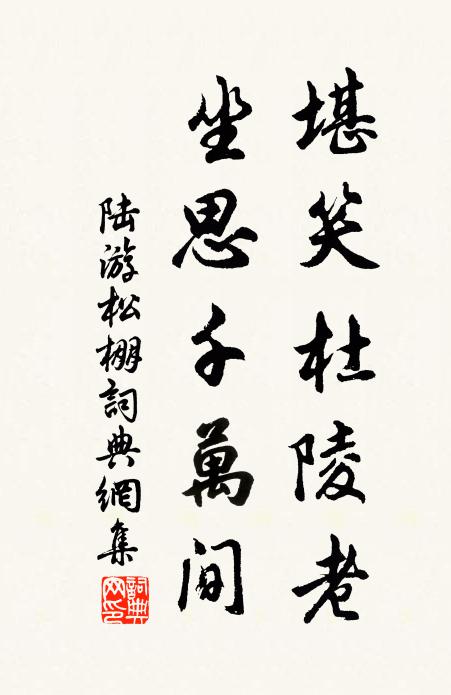 堪笑杜陵老
坐思千萬間
陆游松棚詞典網集
詞典网印